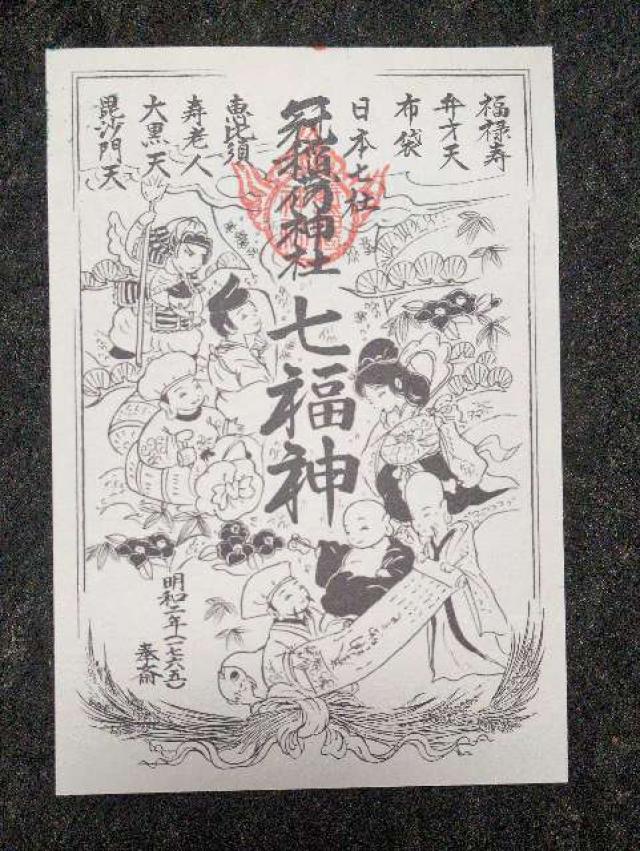 福禄寿
弁才天
布袋
日本七社
冠稲荷神社 七福神
恵比須
寿老人
大黒天
毘沙門天
明和二年(一七六五)
奉斎